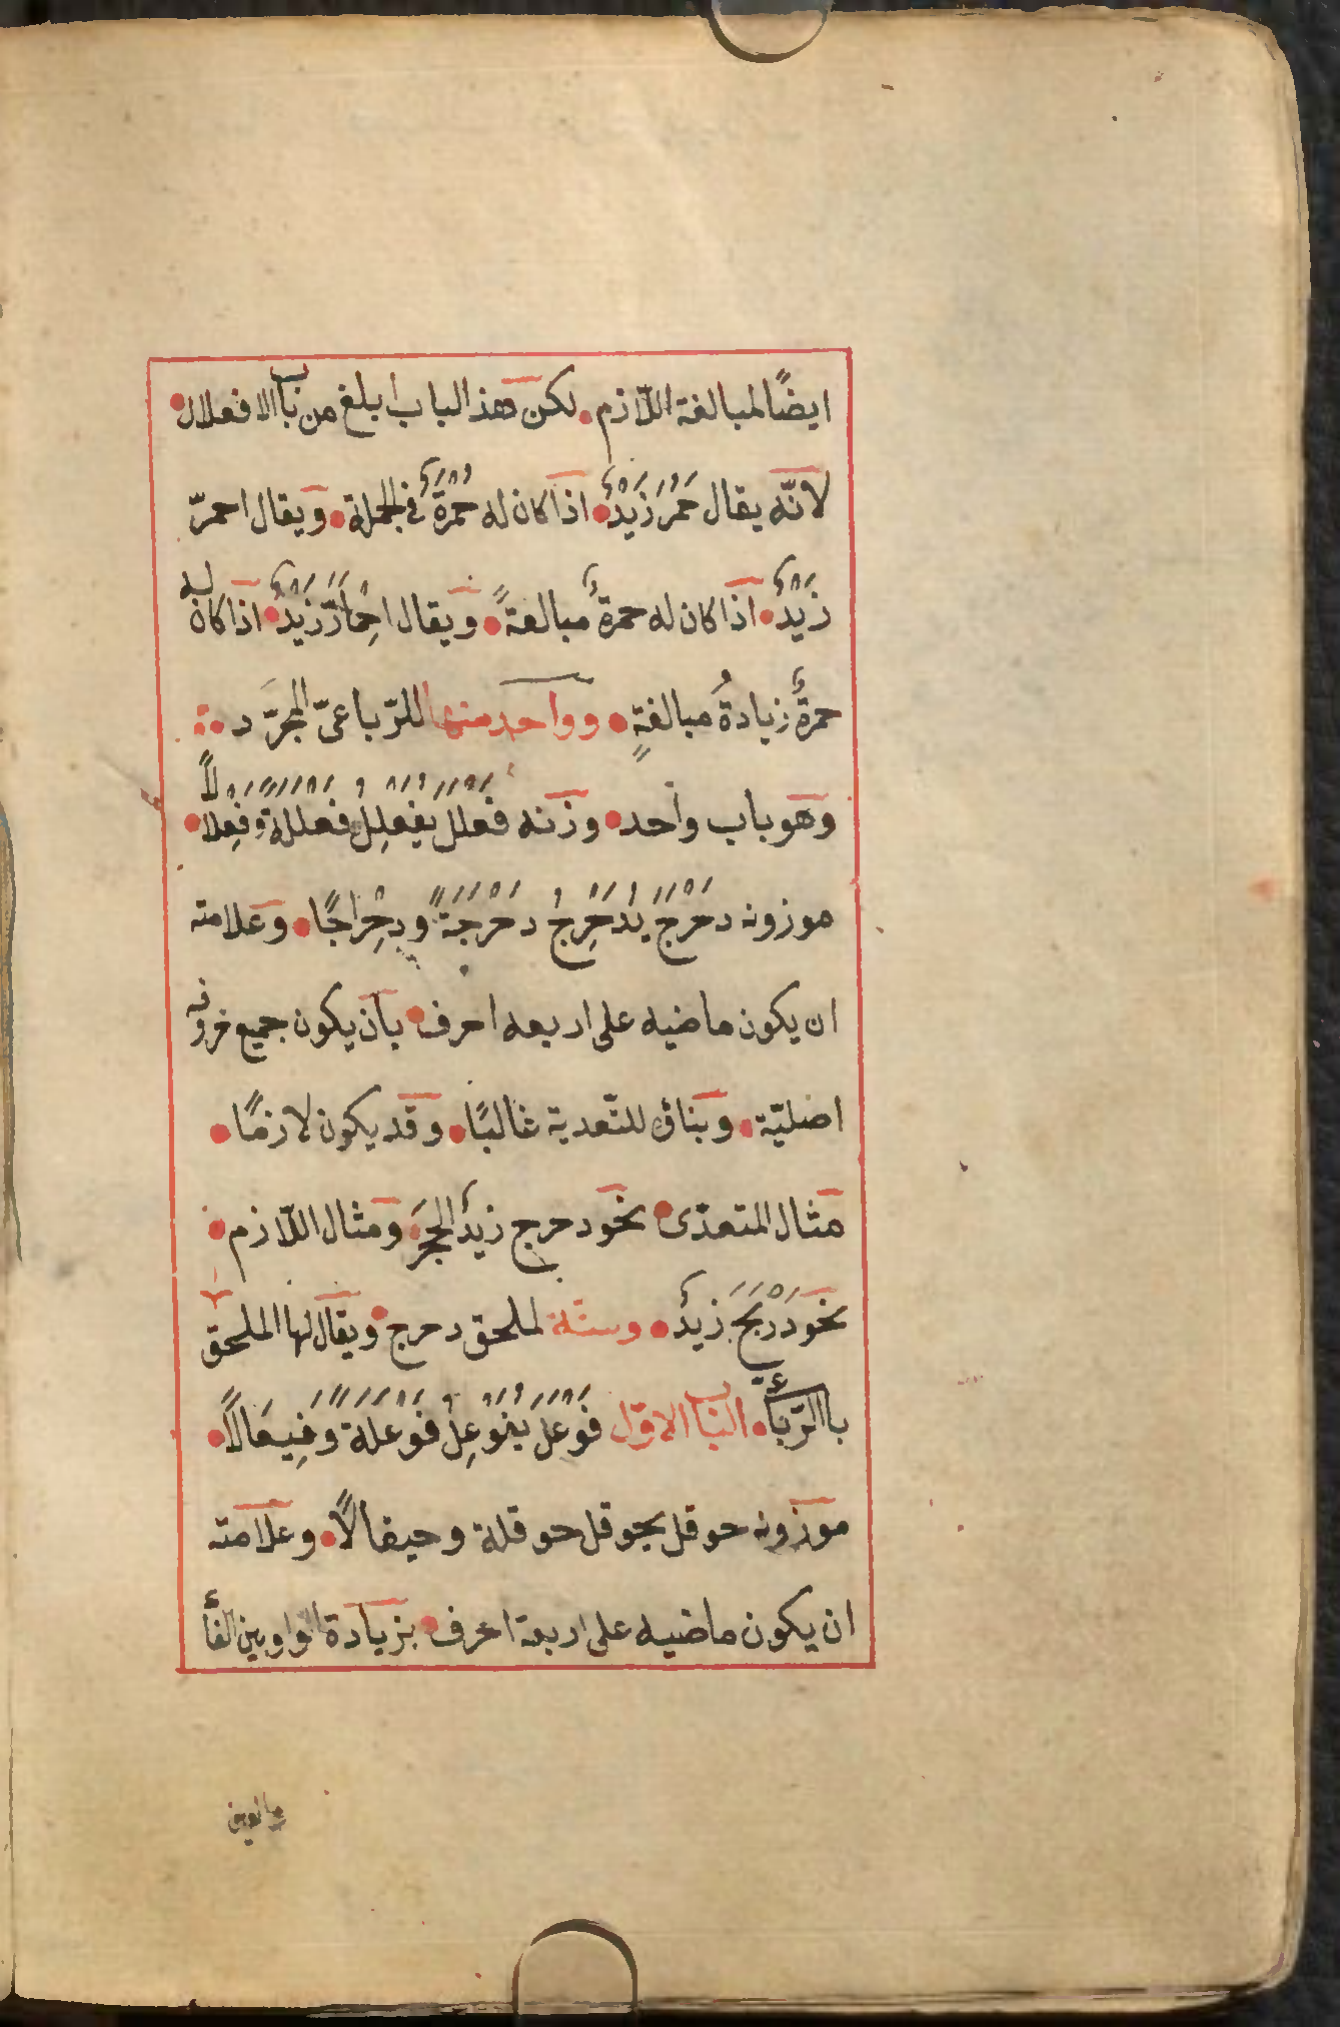 ايضًا لمبالغة اللّازم • لكن هذ الباب ابلغ من باب الافعلال •
لانّه يقال حَمُرَ زَيْدٌ • اذا كان له حُمْرَةٌ في الجملة • ويقال احمرّ
زَيْدٌ • اذا كان له حمرةٌ مبالغةً • ويقال اِحْمَارَّ زَيْدٌ • اذا كان له
حمرةٌ زيادةُ مبالغةٍ • وواحد منها للرّباعىّ المجرّد •
وهو باب واحد • وزنه فَعْلَلَ يُفَعْلِلُ فَعْلَلَةً وفِعْلالًا •
موزونه دَحْرَجَ يُدَحْرِجُ دَحْرَجَةً ودِحْرَاجًا • وعلامته
ان يكون ماضيه على اربعه احرف • بان يكون جميع حروفه
اصليّة • وبناؤ للتّعدية غالبًا • وقد يكون لازمًا •
مثال المتعدّى • نحو دحرج زيدٌ الحجرَ • ومثال اللّازم •
نحو دَرْبَحَ زيدٌ • وستّة لملحق دحرج • ويقال لها الملحق
باالرّباعي • الباب الاوّل فَوْعَلَ يُفَوْعِلُ فَوْعَلَةً وَفِيعَالًا •
موزونه حوقل يحوقل حوقلة وحيقالًا • وعلامته
ان يكون ماضيه على اربعة احرف • بزيادة الواو بين الفأ
والعين